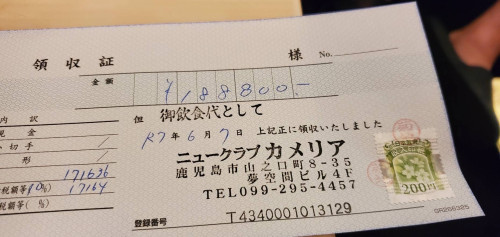 領収証 様 No.
金額 ¥188800.-
但 御飲食代として
内訳
現金
小切手
手形
171636
税額等(10%) 17164
税額等( %)
R7年6月7日 上記正に領収いたしました
ニュークラブ カメリア
鹿児島市山之口町8-35
夢空間ビル4F
TEL099-295-4457
200円
登録番号 T4340001013129